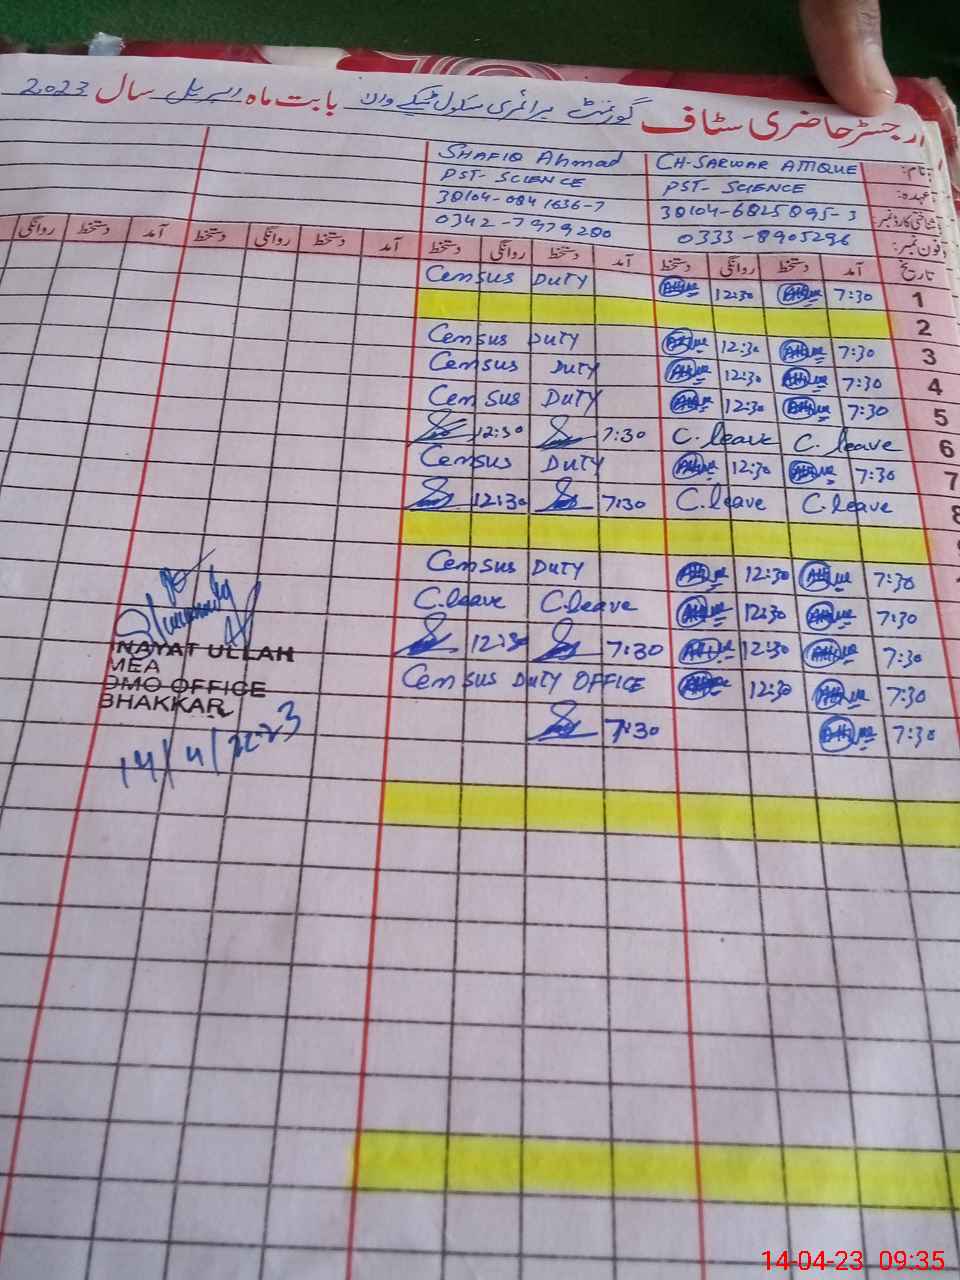 رجسٹر حاضری سٹاف گورنمنٹ پرائمری سکول ٹیکے والا بابت ماہ اپریل سال 2023
نام: CH-SARWAR ATTIQUE SHAFIQ Ahmad
عہدہ: PST- SCIENCE PST- SCIENCE
شناختی کارڈ نمبر 38104-6825895-3 38104-0841636-7
فون نمبر: 0333-8905296 0342-7979280
تاریخ آمد دستخط روانگی دستخط آمد دستخط روانگی دستخط آمد دستخط روانگی دستخط آمد دستخط روانگی
1 7:30 12:30 Census DUTY
2
3 7:30 12:30 Census DUTY
4 7:30 12:30 Census DUTY
5 7:30 12:30 Census DUTY
6 C. leave C. leave 7:30 12:30
7 7:30 12:30 Census DUTY
8 C. leave C. leave 7:30 12:30
7:30 12:30 Census DUTY
7:30 12:30 C. leave C. leave
7:30 12:30 7:30 12:30
7:30 12:30 Census DUTY OFFICE
7:30 7:30
INAYAT ULLAH
MEA
DMO OFFICE
BHAKKAR
14/4/2023
14-04-23 09:35